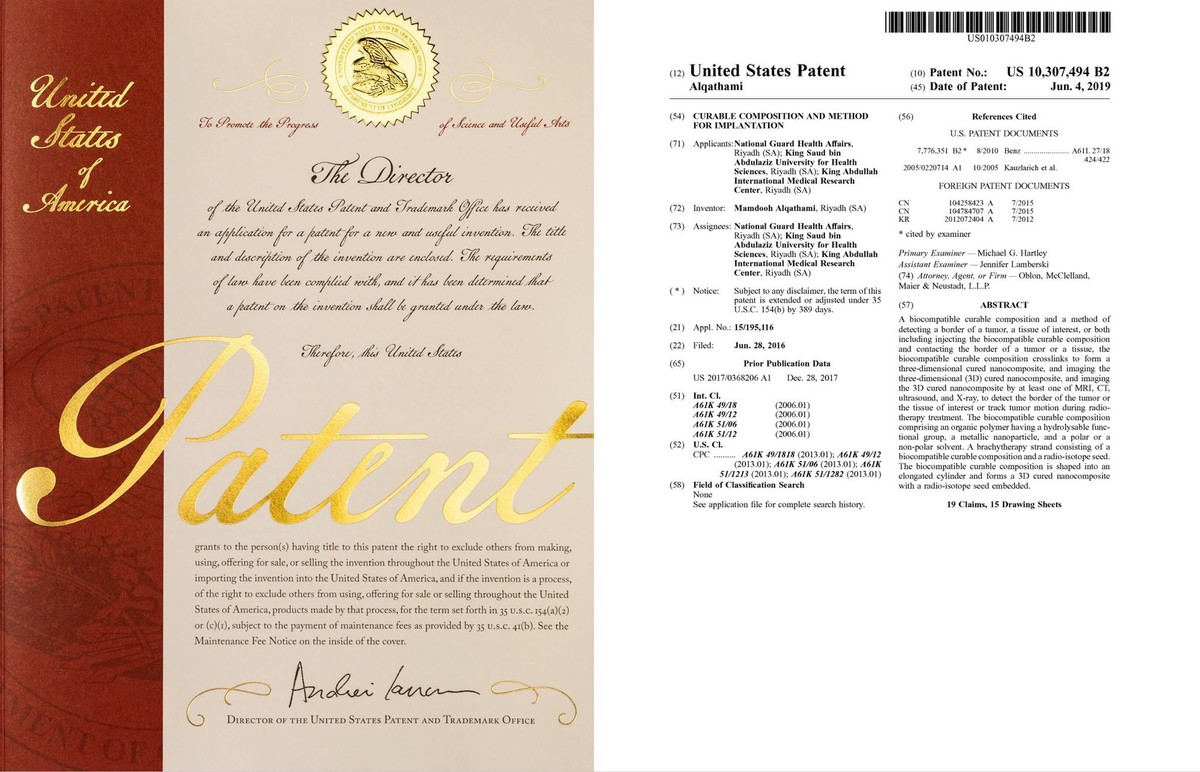 United
States
of
America
To Promote the Progress
of Science and Useful Arts
The Director
of the United States Patent and Trademark Office has received
an application for a patent for a new and useful invention. The title
and description of the invention are enclosed. The requirements
of law have been complied with, and it has been determined that
a patent on the invention shall be granted under the law.
Therefore, this United States
Patent
grants to the person(s) having title to this patent the right to exclude others from making,
using, offering for sale, or selling the invention throughout the United States of America or
importing the invention into the United States of America, and if the invention is a process,
of the right to exclude others from using, offering for sale or selling throughout the United
States of America, products made by that process, for the term set forth in 35 U.S.C. 154(a)(2)
or (c)(1), subject to the payment of maintenance fees as provided by 35 U.S.C. 41(b). See the
Maintenance Fee Notice on the inside of the cover.
Andrei Iancu
DIRECTOR OF THE UNITED STATES PATENT AND TRADEMARK OFFICE
US010307494B2
(12) United States Patent
Alqathami
(10) Patent No.: US 10,307,494 B2
(45) Date of Patent: Jun. 4, 2019
(54) CURABLE COMPOSITION AND METHOD
FOR IMPLANTATION
(71) Applicants: National Guard Health Affairs,
Riyadh (SA); King Saud bin
Abdulaziz University for Health
Sciences, Riyadh (SA); King Abdullah
International Medical Research
Center, Riyadh (SA)
(72) Inventor: Mamdooh Alqathami, Riyadh (SA)
(73) Assignees: National Guard Health Affairs,
Riyadh (SA); King Saud bin
Abdulaziz University for Health
Sciences, Riyadh (SA); King Abdullah
International Medical Research
Center, Riyadh (SA)
( * ) Notice: Subject to any disclaimer, the term of this
patent is extended or adjusted under 35
U.S.C. 154(b) by 389 days.
(21) Appl. No.: 15/195,116
(22) Filed: Jun. 28, 2016
(65) Prior Publication Data
US 2017/0368206 A1 Dec. 28, 2017
(51) Int. Cl.
A61K 49/18 (2006.01)
A61K 49/12 (2006.01)
A61K 51/06 (2006.01)
A61K 51/12 (2006.01)
(52) U.S. Cl.
CPC .......... A61K 49/1818 (2013.01); A61K 49/12
(2013.01); A61K 51/06 (2013.01); A61K
51/1213 (2013.01); A61K 51/1282 (2013.01)
(58) Field of Classification Search
None
See application file for complete search history.
(56) References Cited
U.S. PATENT DOCUMENTS
7,776,351 B2 * 8/2010 Benz ...................... A61L 27/18
424/422
2005/0220714 A1 10/2005 Kauzlarich et al.
FOREIGN PATENT DOCUMENTS
CN 104258423 A 7/2015
CN 104784707 A 7/2015
KR 2012072404 A 7/2012
* cited by examiner
Primary Examiner — Michael G. Hartley
Assistant Examiner — Jennifer Lamberski
(74) Attorney, Agent, or Firm — Oblon, McClelland,
Maier & Neustadt, L.L.P.
(57) ABSTRACT
A biocompatible curable composition and a method of
detecting a border of a tumor, a tissue of interest, or both
including injecting the biocompatible curable composition
and contacting the border of a tumor or a tissue, the
biocompatible curable composition crosslinks to form a
three-dimensional cured nanocomposite, and imaging the
three-dimensional (3D) cured nanocomposite, and imaging
the 3D cured nanocomposite by at least one of MRI, CT,
ultrasound, and X-ray, to detect the border of the tumor or
the tissue of interest or track tumor motion during radio-
therapy treatment. The biocompatible curable composition
comprising an organic polymer having a hydrolysable func-
tional group, a metallic nanoparticle, and a polar or a
non-polar solvent. A brachytherapy strand consisting of a
biocompatible curable composition and a radio-isotope seed.
The biocompatible curable composition is shaped into an
elongated cylinder and forms a 3D cured nanocomposite
with a radio-isotope seed embedded.
19 Claims, 15 Drawing Sheets